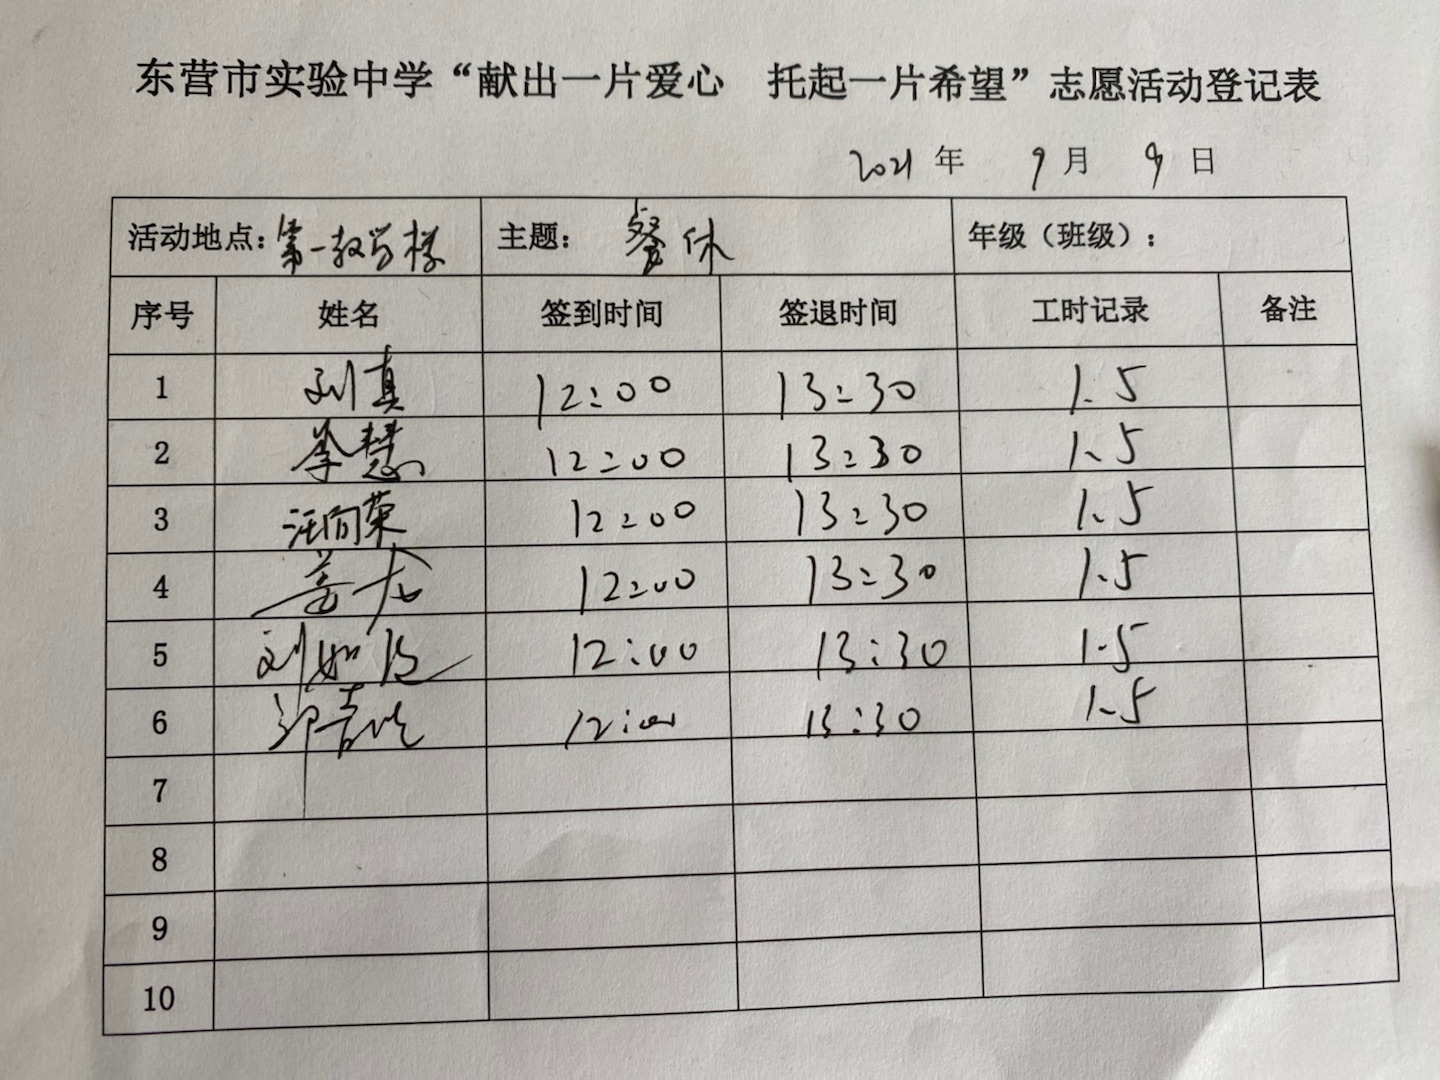 东营市实验中学“献出一片爱心 托起一片希望”志愿活动登记表
2021年 9月 9日
活动地点：第一教学楼 主题：餐休 年级（班级）：
序号 姓名 签到时间 签退时间 工时记录 备注
1 刘真 12:00 13:30 1.5
2 李慧 12:00 13:30 1.5
3 汪向荣 12:00 13:30 1.5
4 姜龙 12:00 13:30 1.5
5 刘如 12:00 13:30 1.5
6 12:00 13:30 1.5
7
8
9
10